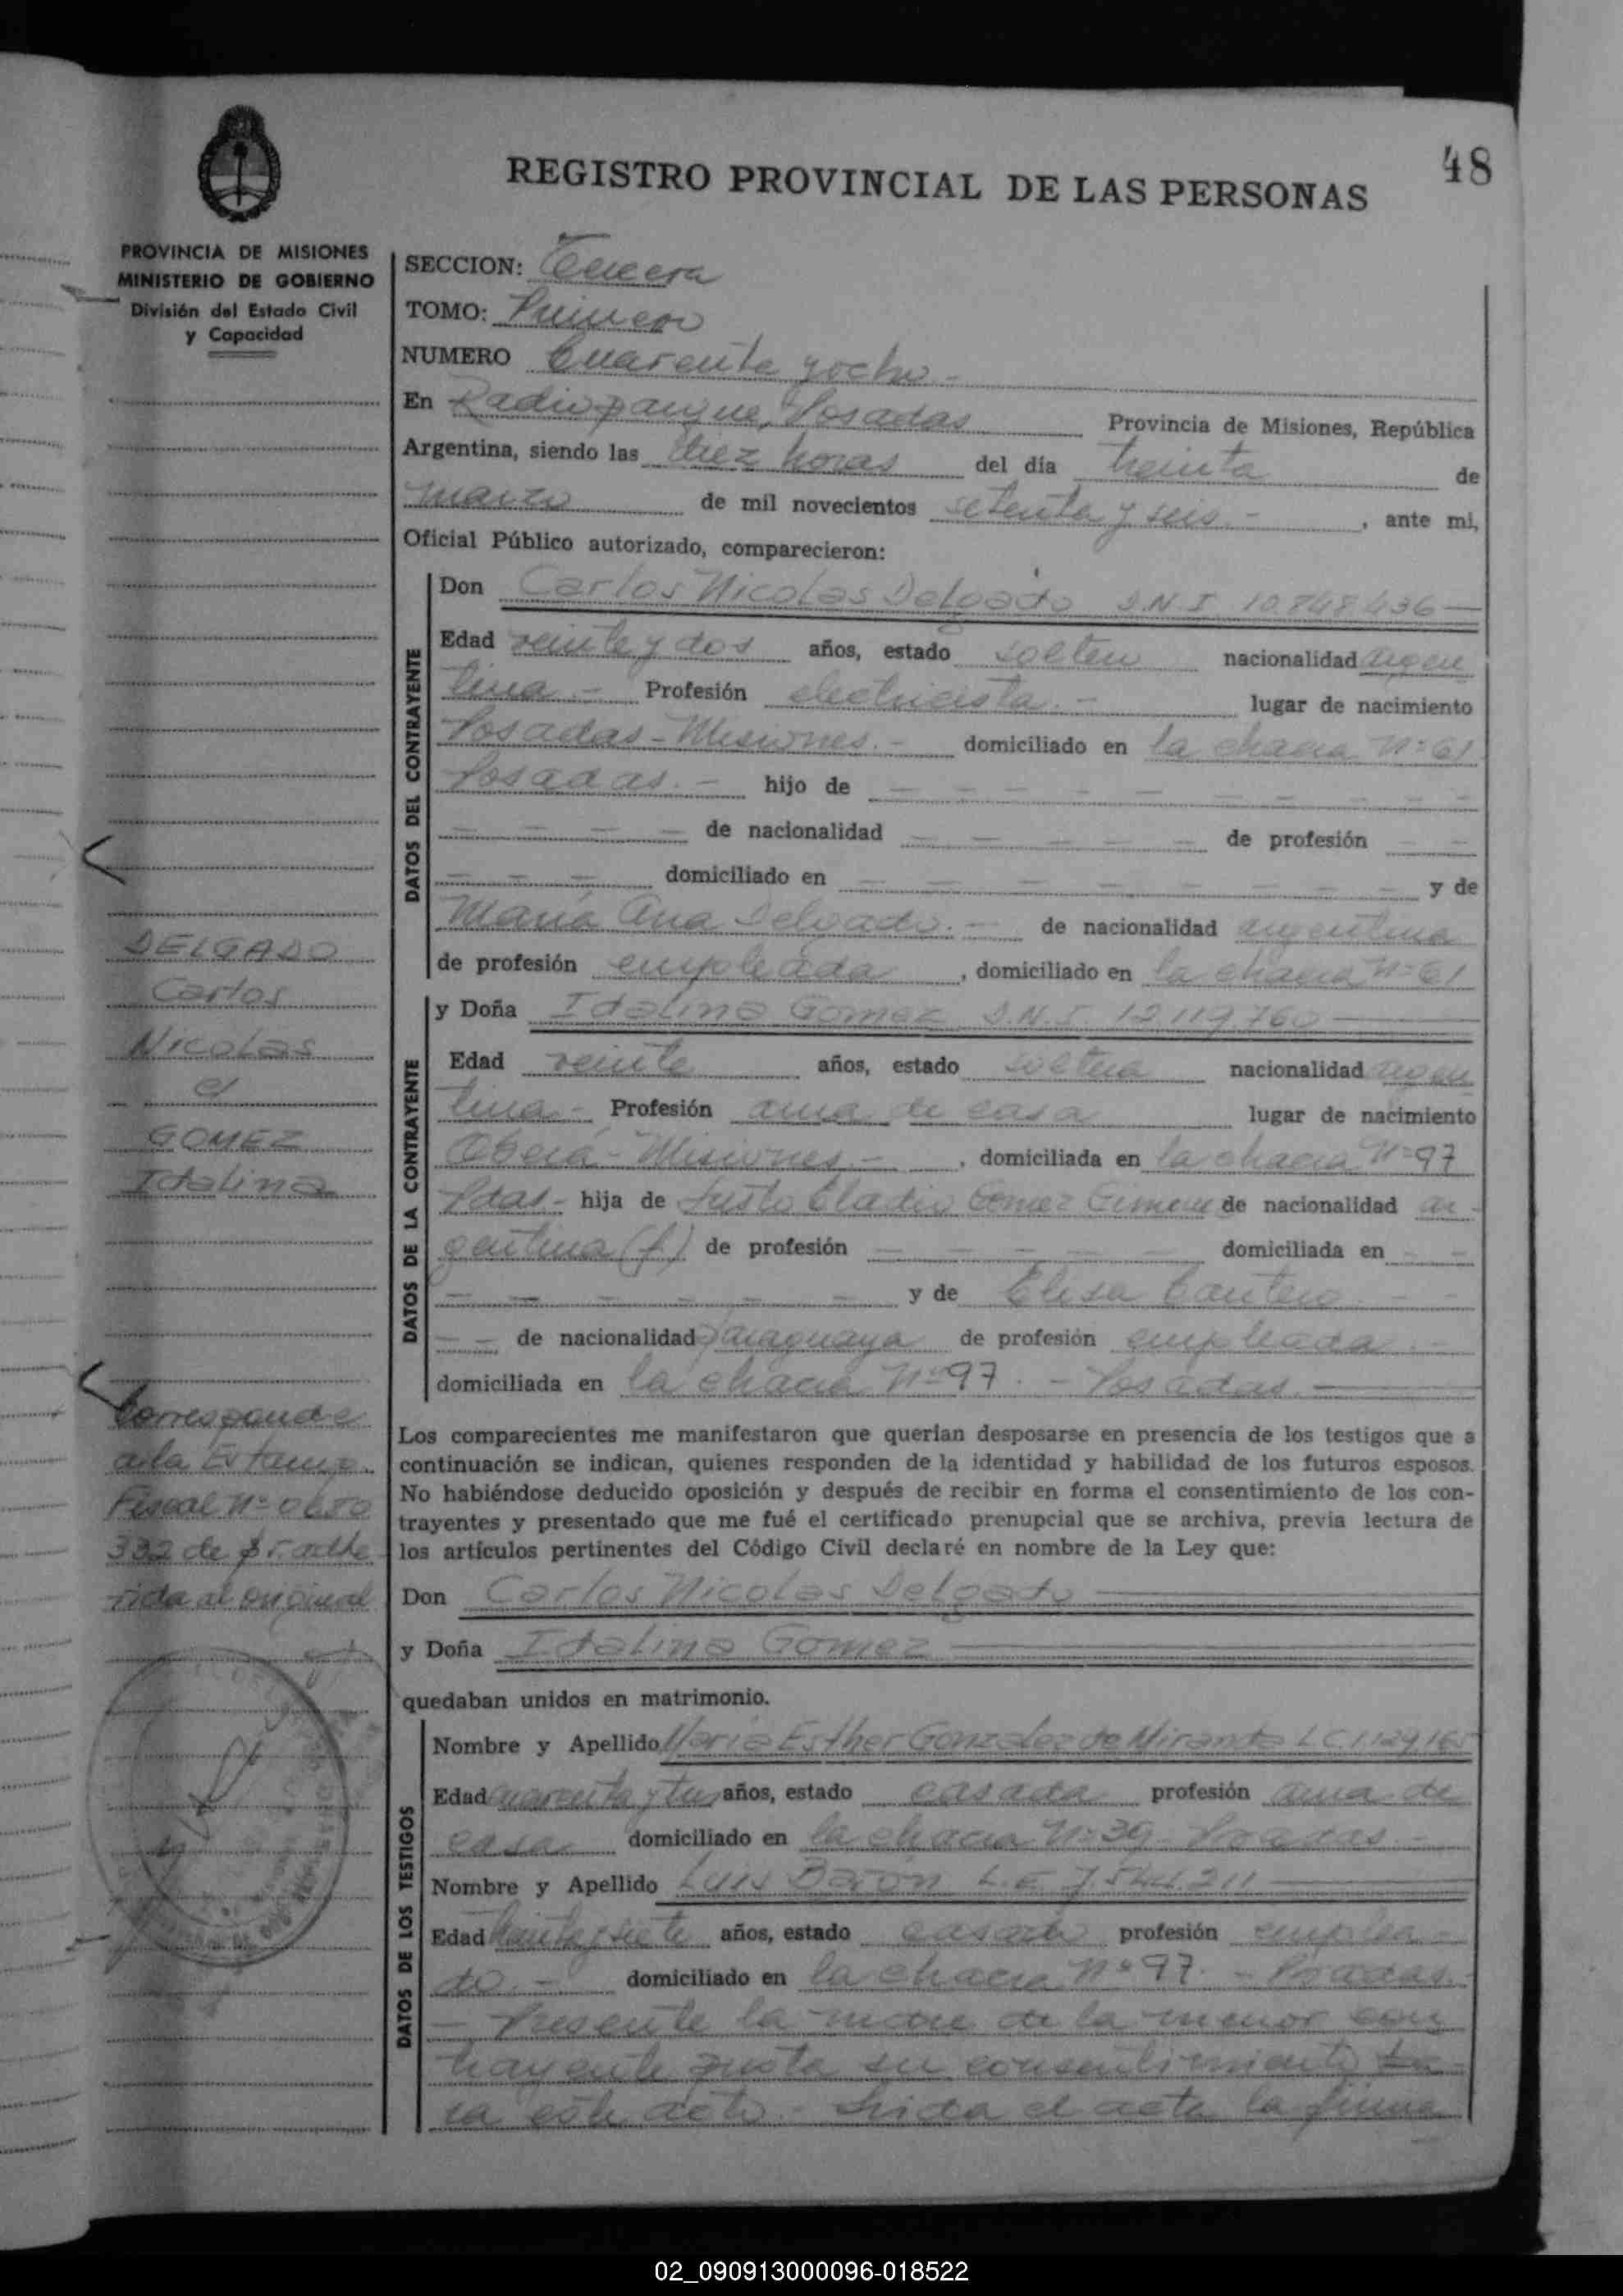 48
REGISTRO PROVINCIAL DE LAS PERSONAS
PROVINCIA DE MISIONES
MINISTERIO DE GOBIERNO
División del Estado Civil
y Capacidad
SECCION: Tercera
TOMO: Primero
NUMERO Cuarenta y ocho -
En Radioparque, Posadas Provincia de Misiones, República
Argentina, siendo las diez horas del día treinta de
marzo de mil novecientos setenta y seis.- , ante mi,
Oficial Público autorizado, comparecieron:
DATOS DEL CONTRAYENTE
Don Carlos Nicolas Delgado D.N.I. 10.848.436
Edad veinte y dos años, estado soltero nacionalidad argen
tina.- Profesión electricista.- lugar de nacimiento
Posadas - Misiones.- domiciliado en la chacra Nº 61
Posadas.- hijo de
de nacionalidad de profesión
domiciliado en y de
María Ana Delgado.- de nacionalidad argentina
de profesión empleada , domiciliado en la chacra Nº 61
DATOS DE LA CONTRAYENTE
y Doña Idalina Gomez D.N.I. 12.119.760
Edad veinte años, estado soltera nacionalidad argen
tina - Profesión ama de casa lugar de nacimiento
Oberá - Misiones.- , domiciliada en la chacra Nº 97
Pdas.- hija de Justo Eladio Gomez de nacionalidad ar-
gentina (f) de profesión domiciliada en
y de Elisa Cantero
de nacionalidad paraguaya de profesión empleada.-
domiciliada en la chacra Nº 97.- Posadas.
Los comparecientes me manifestaron que querían desposarse en presencia de los testigos que a
continuación se indican, quienes responden de la identidad y habilidad de los futuros esposos.
No habiéndose deducido oposición y después de recibir en forma el consentimiento de los con-
trayentes y presentado que me fué el certificado prenupcial que se archiva, previa lectura de
los artículos pertinentes del Código Civil declaré en nombre de la Ley que:
Don Carlos Nicolas Delgado
y Doña Idalina Gomez
quedaban unidos en matrimonio.
DATOS DE LOS TESTIGOS
Nombre y Apellido Maria Esther Gonzalez de Miranda L.C. 1.129.165
Edad cuarenta y tres años, estado casada profesión ama de
casa domiciliado en la chacra Nº 39 - Posadas -
Nombre y Apellido Luis Baron L.E. 7.544.211
Edad treinta y siete años, estado casado profesión emplea-
do.- domiciliado en la chacra Nº 97.- Posadas.-
- Presente la madre de la menor con
trayente presta su consentimiento pa-
ra este acto.- Leida el acta la firma
DELGADO
Carlos
Nicolas
c/
GOMEZ
Idalina
Corresponde
a la Estamp.
Fiscal Nº 0650
332 de $ 5 adhe
rida al original
02_090913000096-018522